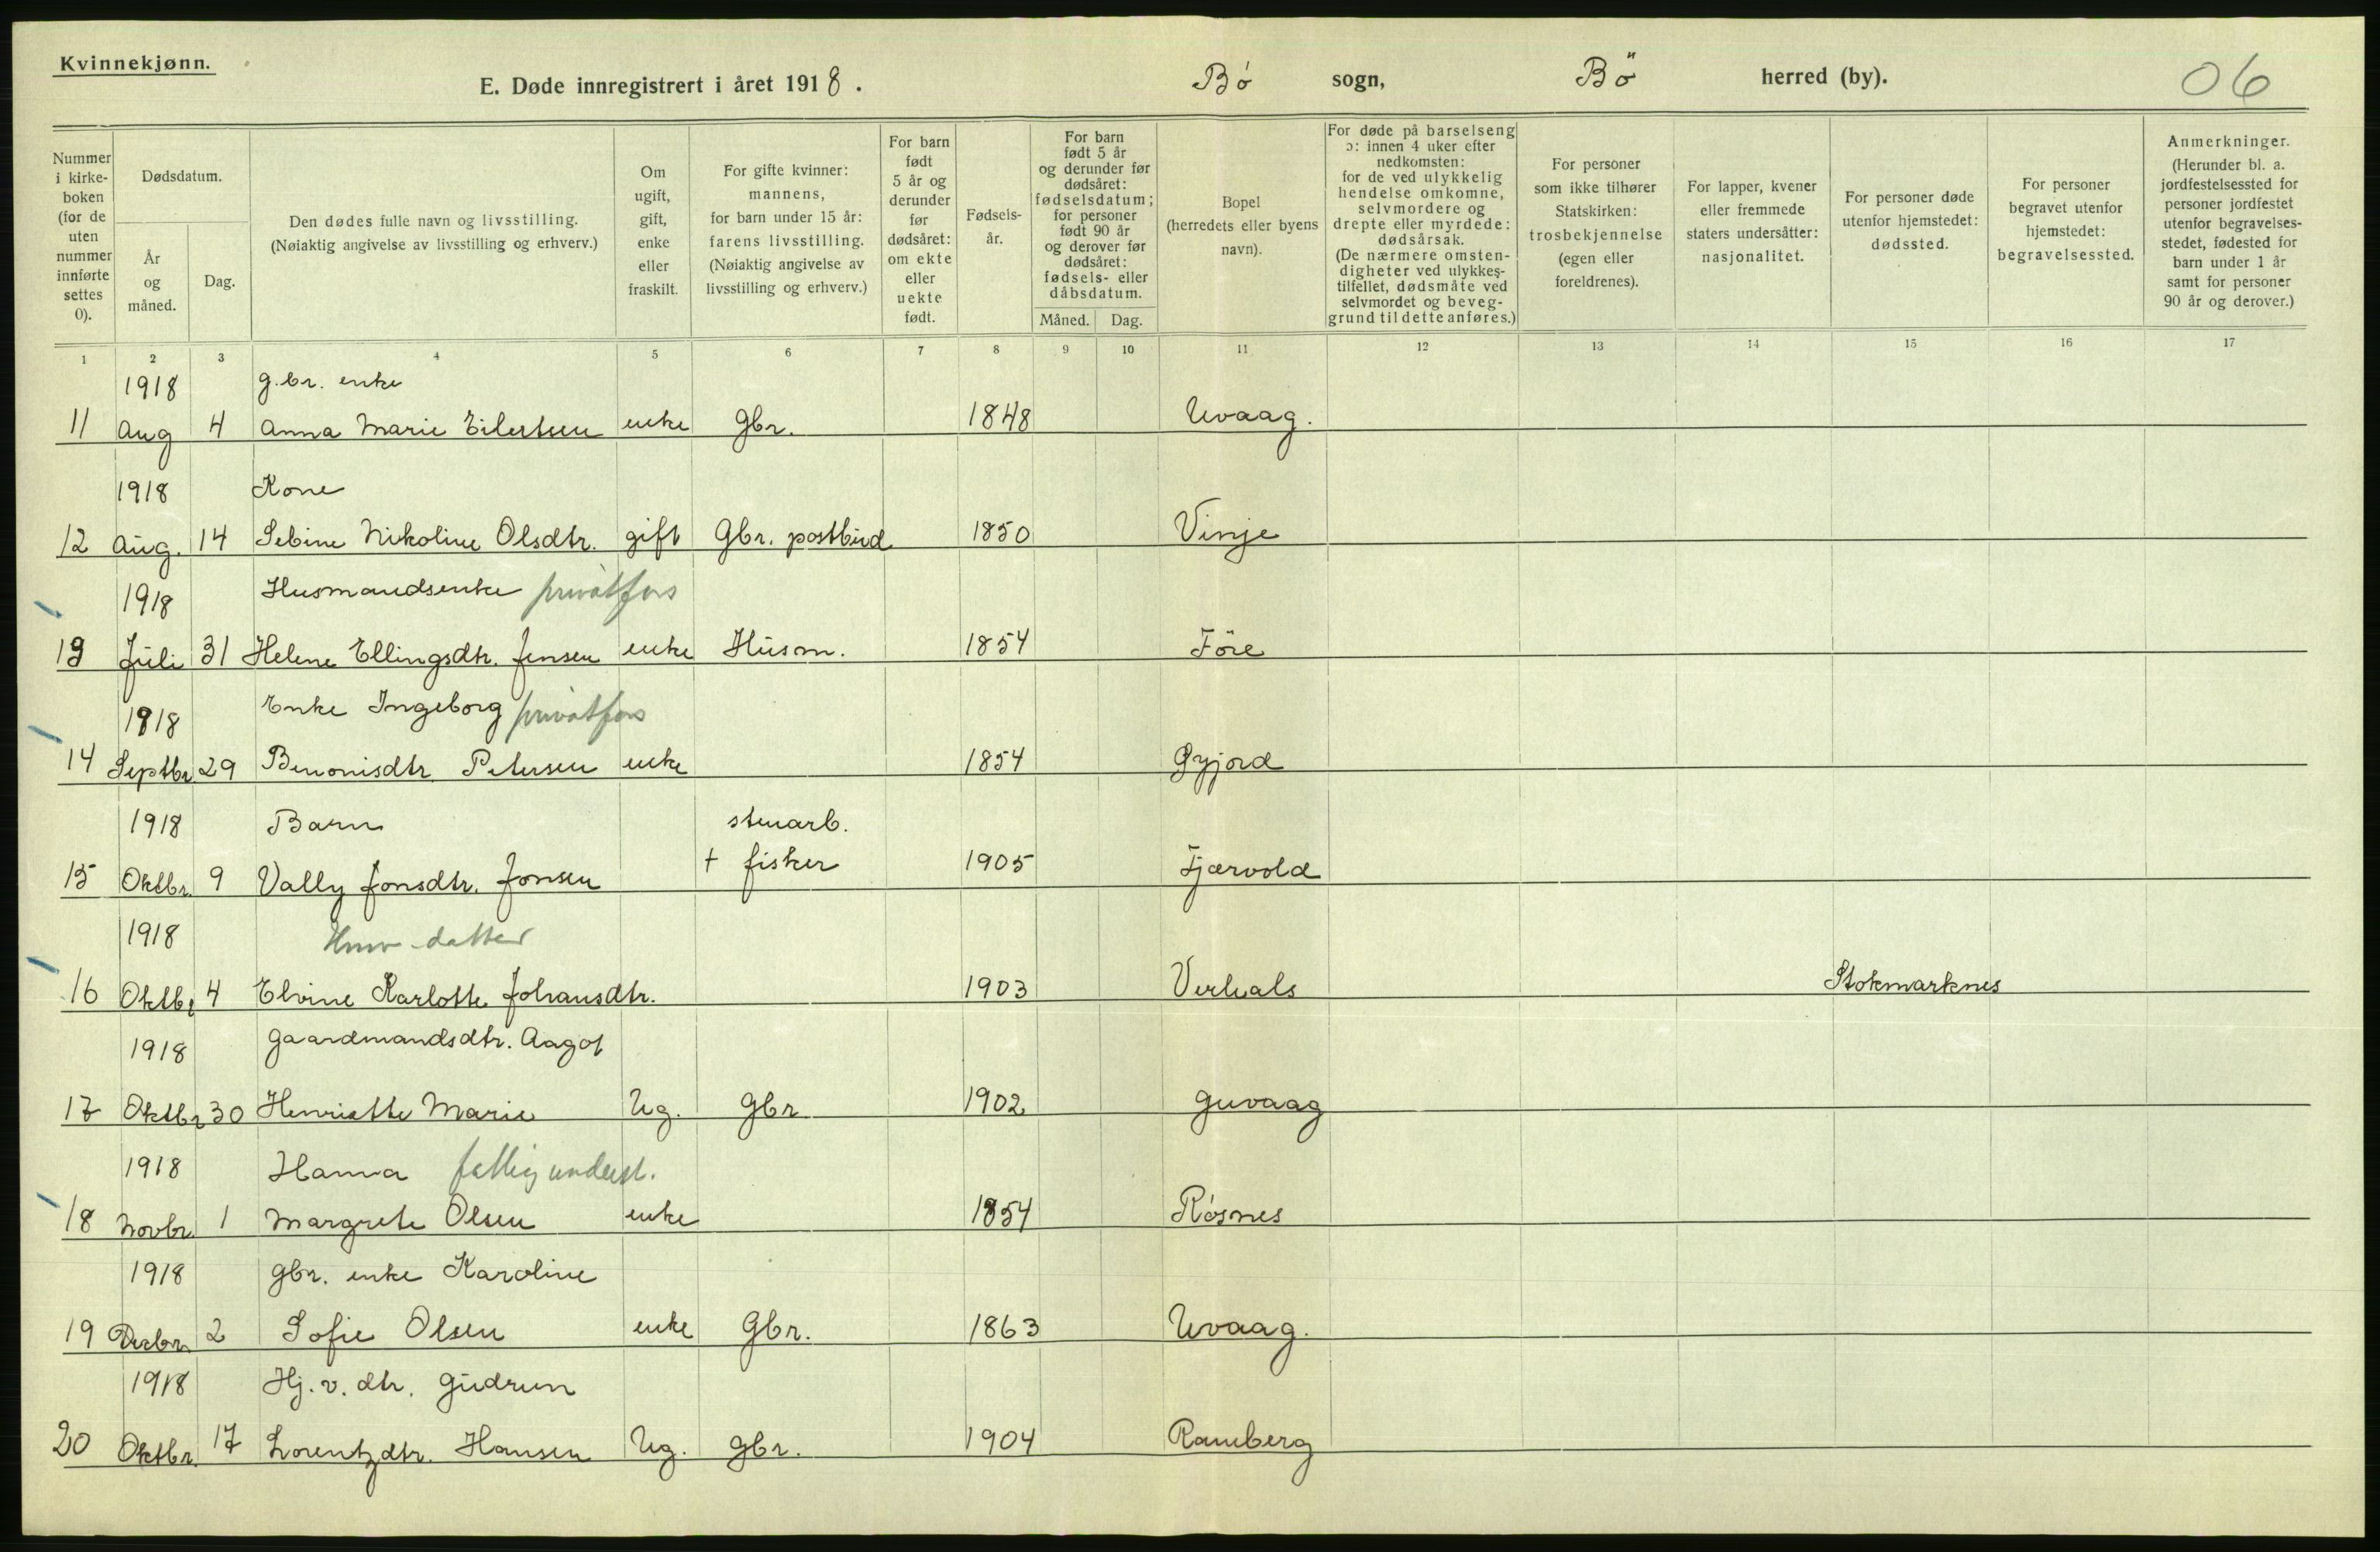 Kvinnekjønn.
E. Døde innregistrert i året 1918. Bó sogn, Bö herred (by). 06
Nummer i kirkeboken (for de uten nummer innførte settes 0).
Dødsdatum.
År og måned.
Dag.
Den dødes fulle navn og livsstilling.
(Nøiaktig angivelse av livsstilling og erhverv.)
Om ugift, gift, enke eller fraskilt.
For gifte kvinner: mannens, for barn under 15 år: farens livsstilling. (Nøiaktig angivelse av livsstilling og erhverv.)
For barn født 5 år og derunder før dødsåret: om ekte eller uekte født.
Fødselsår.
For barn født 5 år og derunder før dødsåret: fødselsdatum; for personer født 90 år og derover før dødsåret: fødsels- eller dåbsdatum.
Måned. Dag.
Bopel (herredets eller byens navn).
For døde på barselseng ɔ: innen 4 uker efter nedkomsten: for de ved ulykkelig hendelse omkomne, selvmordere og drepte eller myrdede: dødsårsak. (De nærmere omstendigheter ved ulykkestilfellet, dødsmåte ved selvmordet og beveggrund til dette anføres.)
For personer som ikke tilhører Statskirken: trosbekjennelse (egen eller foreldrenes).
For lapper, kvener eller fremmede staters undersåtter: nasjonalitet.
For personer døde utenfor hjemstedet: dødssted.
For personer begravet utenfor hjemstedet: begravelsessted.
Anmerkninger. (Herunder bl. a. jordfestelsessted for personer jordfestet utenfor begravelsesstedet, fødested for barn under 1 år samt for personer 90 år og derover.)
1 2 3 4 5 6 7 8 9 10 11 12 13 14 15 16 17
1918 g.br. enke
11 Aug 4 Anna Marie Eilertsen enke Gbr. 1848 Uvaag.
1918 Kone
12 Aug. 14 Sebine Nikoline Olsdtr. gift Gbr. postbud 1850 Vinje
1918 Husmandsenke privatfors
13 Juli 31 Helene Ellingsdtr. Jensen enke Husm. 1854 Före
1918 Enke Ingeborg privatfors
14 Septbr 29 Benonisdtr. Petersen enke 1854 Gyjord
1918 Barn stenarb.
15 Oktbr. 9 Vally Jonsdtr. Jonsen + fisker 1905 Fjærvold
1918 datter
16 Oktbr 4 Elvine Karlotte Johansdtr. 1903 Verhals Stokmarknes
1918 Gaardmandsdtr. Aagot
17 Oktbr 30 Henriette Marie Ug. Gbr 1902 Guvaag
1918 Hanna fattigunderst.
18 Novbr 1 Margrete Olsen enke 1854 Røsnes
1918 Gbr. enke Karoline
19 Decbr 2 Sofie Olsen enke Gbr. 1863 Uvaag.
1918 Hj. v. dtr. Gudrun
20 Oktbr. 17 Lorentzdtr. Hansen Ug. gbr. 1904 Ramberg